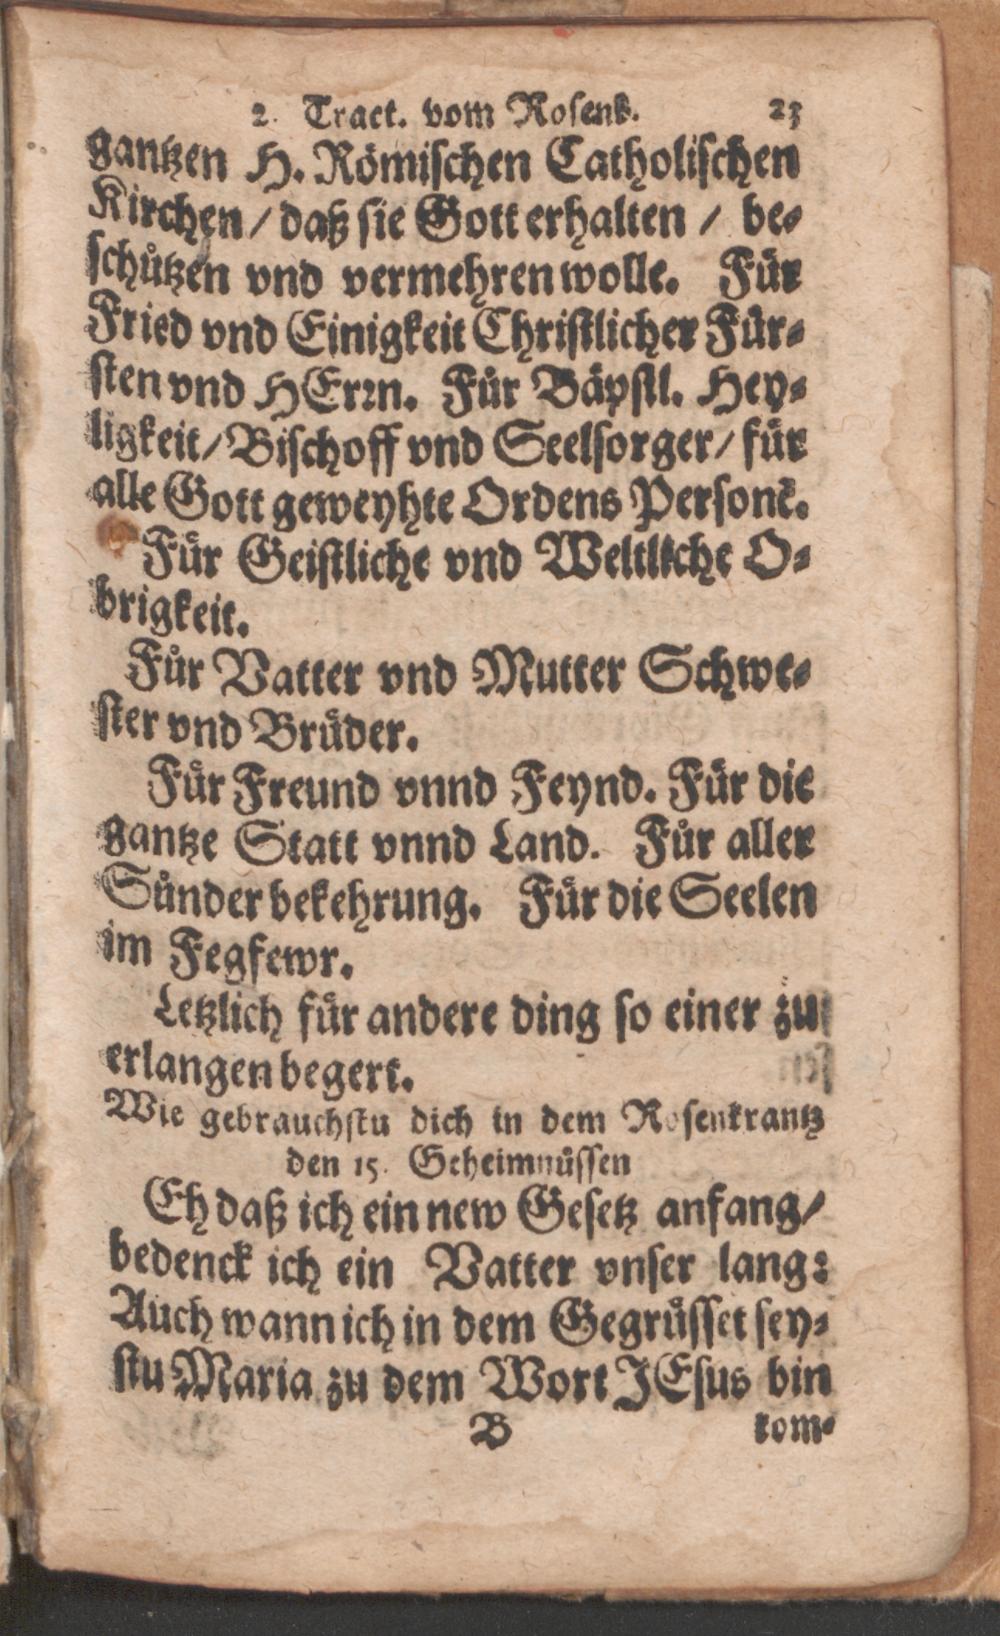 2. Tract. vom Rosenk. 23
gantzen H. Römischen Catholischen
Kirchen / daß sie Gott erhalten / be-
schützen vnd vermehren wolle. Für
Fried vnd Einigkeit Christlicher Für-
sten vnd HErrn. Für Bäpstl. Hey-
ligkeit / Bischoff vnd Seelsorger / für
alle Gott geweyhte Ordens Personẽ.
Für Geistliche vnd Weltliche O-
brigkeit.
Für Vatter vnd Mutter Schwe-
ster vnd Brüder.
Für Freund vnnd Feynd. Für die
gantze Statt vnnd Land. Für aller
Sünder bekehrung. Für die Seelen
im Fegfewr.
Letzlich für andere ding so einer zu
erlangen begert.
Wie gebrauchstu dich in dem Rosenkrantz
den 15. Geheimnüssen
Eh daß ich ein new Gesetz anfang /
bedenck ich ein Vatter vnser lang:
Auch wann ich in dem Gegrüsset sey-
stu Maria zu dem Wort JEsus bin
B kom-